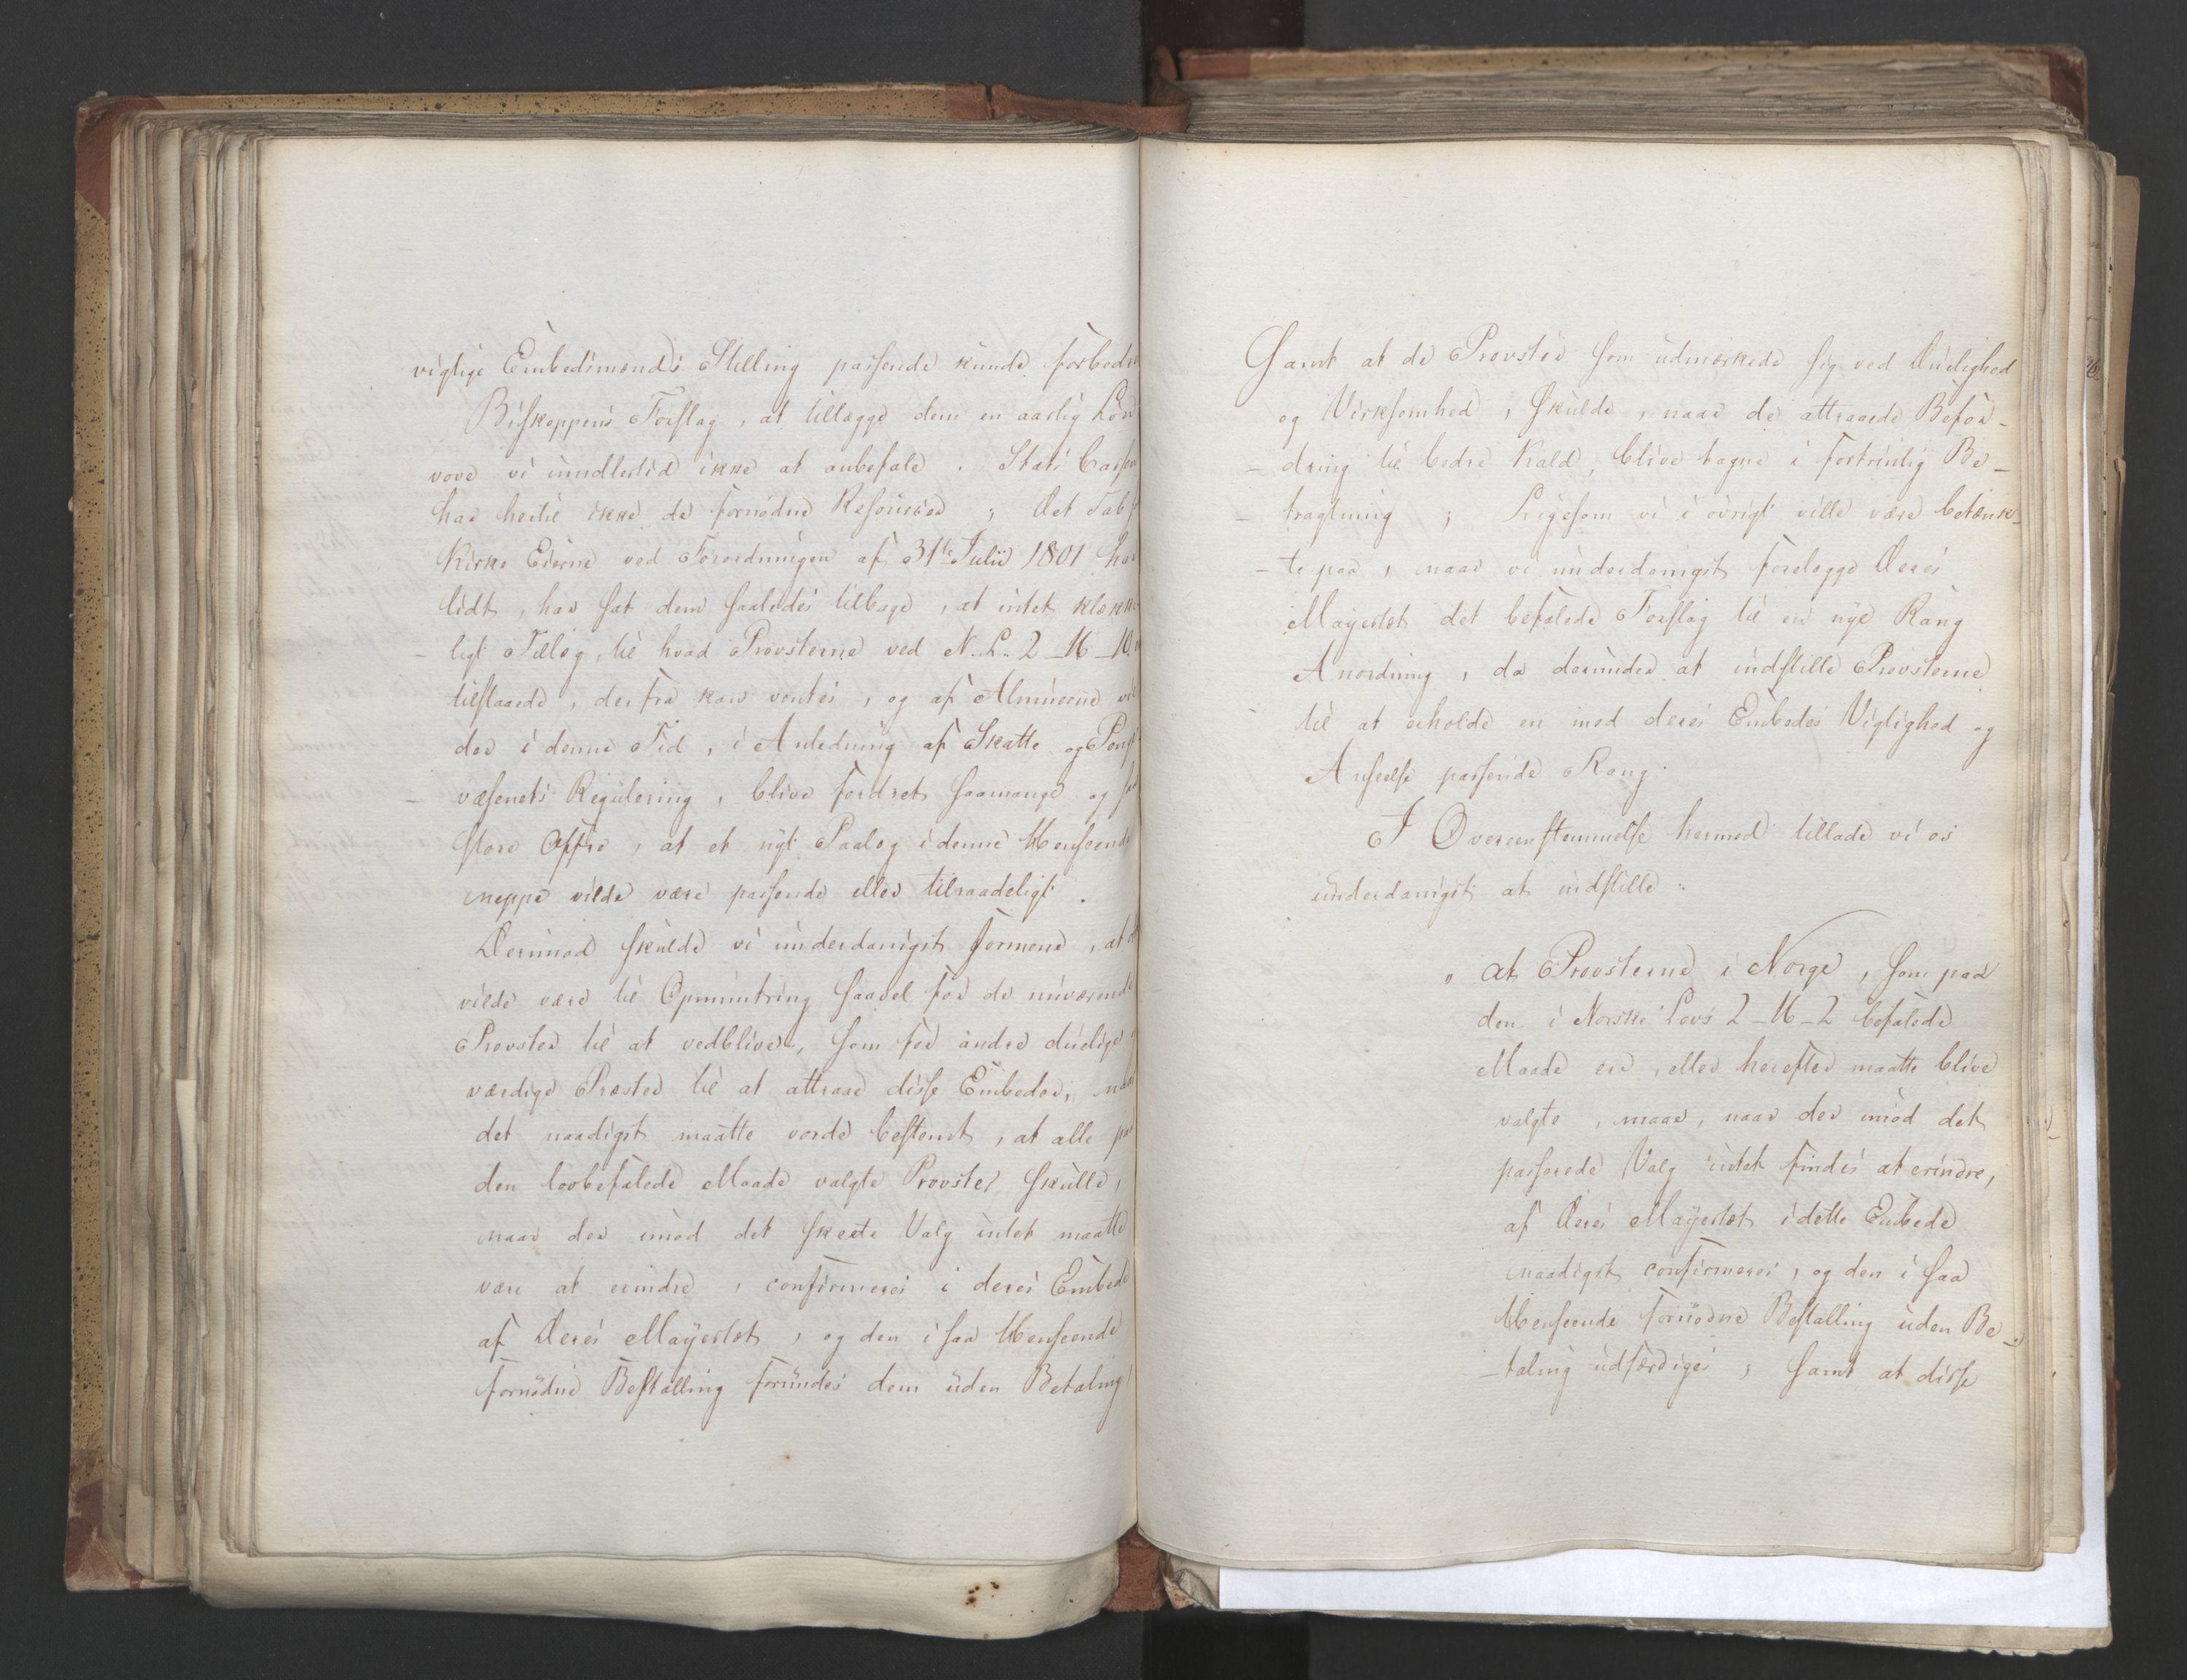 vigtige Embedsmænds Stilling passende kunde forbedre
Biskoppens Forslag, at tillægge dem en aarlig Løn
vove vi imidlertid ikke at anbefale. Stats Cassen
har hertil ikke de fornødne Resourcer; Det Tab
Kirke Eierne ved Forordningen af 31te Julii 1801 har
lidt, har sat dem saaledes tilbage, at intet klække-
-ligt Tillæg, til hvad Provsterne ved N. L. 2-16-10
tilstaaede, derfra kan ventes, og af Almuerne vil
der i denne Tid, i Anledning af Skatte og Penge
- væsenets Regulering, blive fordret saamange og saa
store Offre, at et nyt Paalæg i denne Henseende
neppe vilde være passende eller tilraadeligt.
Derimod skulde vi underdanigst formene, at det
vilde være til Opmuntring saavel for de nuværende
Provster til at vedblive, som for andre duelige og
værdige Præster til at attraae disse Embeder, naar
det naadigst maatte vorde bestemt, at alle paa
den lovbefalede Maade valgte Provster skulle,
naar der imod det skeete Valg intet maatte
være at erindre, confirmeres i deres Embede
af Deres Mayestæt, og den i saa Henseende
fornødne Bestalling forundes dem uden Betaling
Samt at de Provster som udmærkede sig ved Duelighed
og Virksomhed, skulde, naar de attraaede Befor-
-dring til bedre Kald, blive tagne i fortrinlig Be-
-tragtning; Ligesom vi i øvrigt ville være betænk-
-te paa, naar vi underdanigst forelægge Deres
Mayestæt det befalede Forslag til en nye Rang
Anordning, da derunder at indstille Provsterne
til at erholde en med deres Embedes Vigtighed og
Anseelse passende Rang.
I Overeenstemmelse hermed tillade vi os
underdanigst at indstille:
" at Provsterne i Norge, som paa
den i Norske Lovs 2-16-2 befalede
Maade ere, eller herefter maatte blive
valgte, maae, naar der imod det
passerede Valg intet findes at erindre,
af Deres Mayestæt i dette Embede
naadigst confirmeres, og den i saa
Henseende fornødne Bestalling uden Be-
-taling udfærdiges; samt at disse